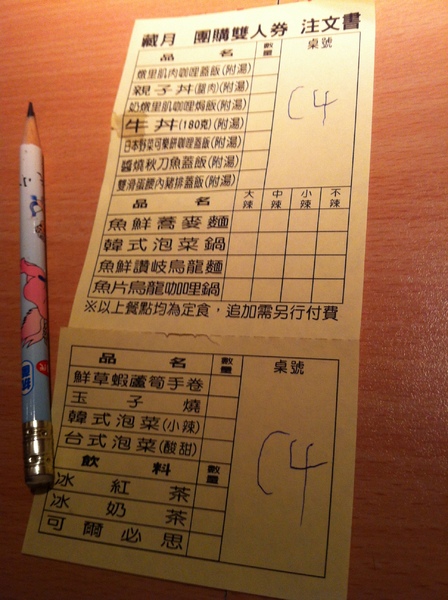 藏月 團購雙人券 注文書
品名 數量 桌號
燉里肌肉咖哩蓋飯(附湯)
親子丼(腿肉)(附湯)
奶燉里肌咖哩焗飯(附湯)
牛丼(180克)(附湯)
日本野菜可樂餅咖哩蓋飯(附湯)
醬燒秋刀魚蓋飯(附湯)
雙滑蛋腰內豬排蓋飯(附湯)
C4
品名 大辣 中辣 小辣 不辣
魚鮮蕎麥麵
韓式泡菜鍋
魚鮮讚岐烏龍麵
魚片烏龍咖哩鍋
※以上餐點均為定食，追加需另行付費
品名 數量 桌號
鮮草蝦蘆筍手卷
玉子燒
韓式泡菜(小辣)
台式泡菜(酸甜)
飲料 數量
冰紅茶
冰奶茶
可爾必思
C4